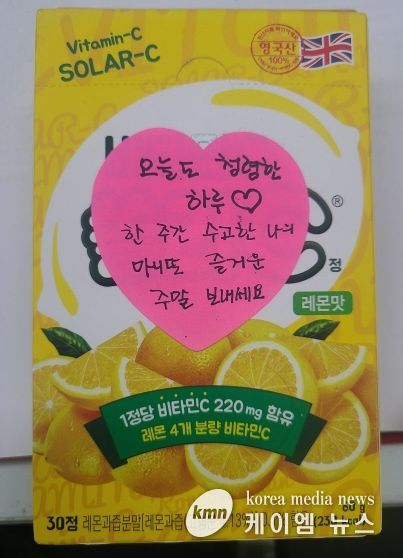 Vitamin-C
SOLAR-C
영국산
100%
오늘도 청렴한
하루♡
한 주간 수고한 나의
마니또 즐거운
주말 보내세요
®
정
레몬맛
1정당 비타민C 220mg 함유
레몬 4개 분량 비타민C
30정 레몬과즙분말(레몬과즙
60g
kmn korea media news
케이엠 뉴스